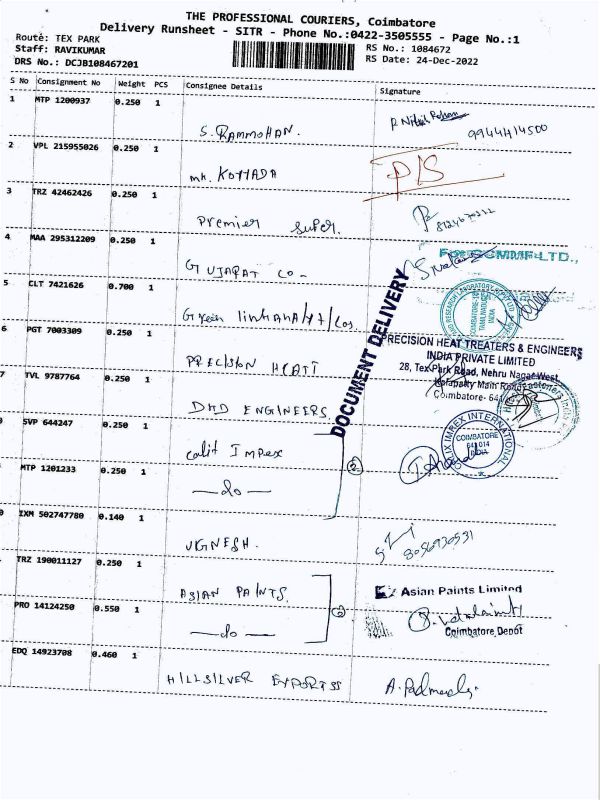 THE PROFESSIONAL COURIERS, Coimbatore
Delivery Runsheet - SITR - Phone No.:0422-3505555 - Page No.:1
Route: TEX PARK
Staff: RAVIKUMAR
DRS No.: DCJB108467201
RS No.: 1084672
RS Date: 24-Dec-2022
S No Consignment No Weight PCS Consignee Details Signature
1 MTP 1200937 0.250 1 S. RAMMOHAN. 9944414500
2 VPL 215955026 0.250 1 MR. KOTTADA P/S
3 TRZ 42462426 0.250 1 Premier Super.
4 MAA 295312209 0.250 1 GUJARAT CO-
5 CLT 7421626 0.700 1 Green
6 PGT 7003309 0.250 1 PRECISION HEATT
7 TVL 9787764 0.250 1 DHD ENGINEERS
SVP 644247 0.250 1 Calit Impex
MTP 1201233 0.250 1 —do— 2
IXM 502747780 0.140 1 VIGNESH. 8056930531
TRZ 190011127 0.250 1 ASIAN PAINTS.
PRO 14124250 0.550 1 —do— 2
EDQ 14923708 0.460 1 HILLSILVER EXPORTSS
DOCUMENT DELIVERY
PRECISION HEAT TREATERS & ENGINEERS
INDIA PRIVATE LIMITED
28, Tex Park Road, Nehru Nagar West
Kalapatty Main Road
Coimbatore- 641
IMPEX INTERNATIONAL
COIMBATORE
641 014
INDIA
Asian Paints Limited
Coimbatore Depot